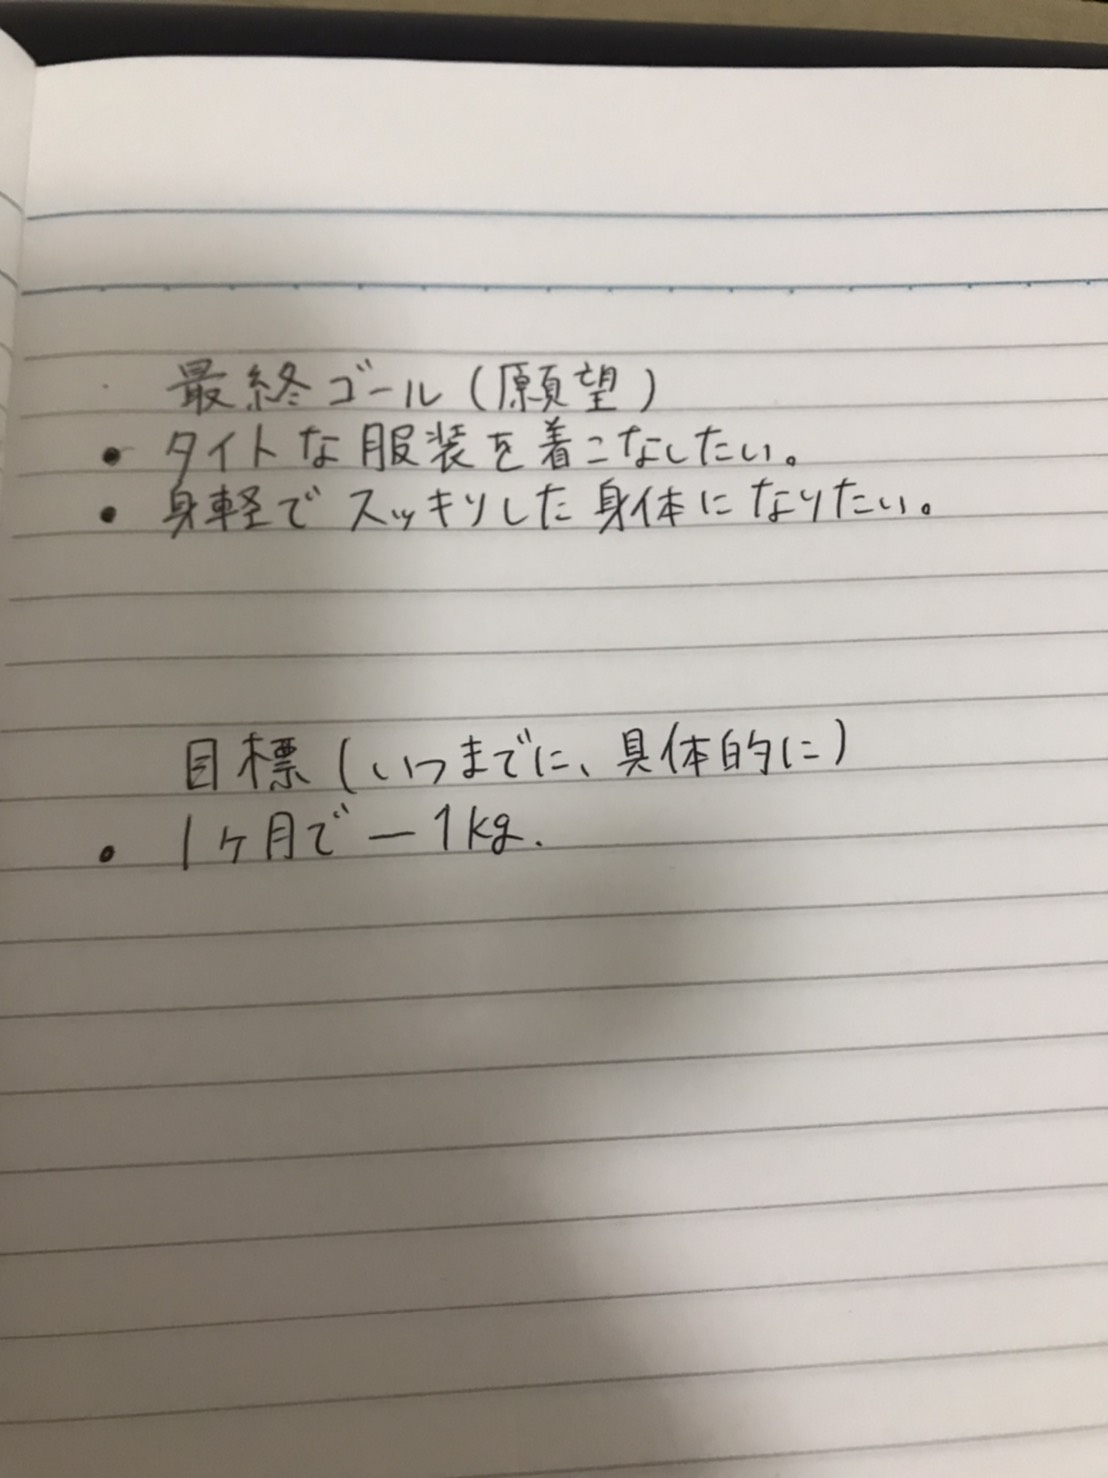 最終ゴール(願望)
• タイトな服装を着こなしたい。
• 身軽でスッキリした身体になりたい。
目標(いつまでに、具体的に)
• 1ヶ月で −1kg.